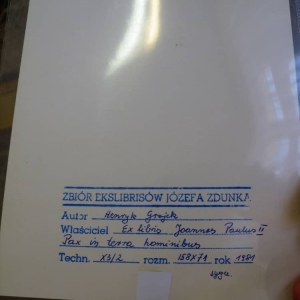 ZBIÓR EKSLIBRISÓW JÓZEFA ZDUNKA
Autor Henryk Grajek
Właściciel Ex libris Joannes Paulus II
Pax in terra hominibus
Techn. X3/2 rozm. 158x71 rok 1981
sygn.